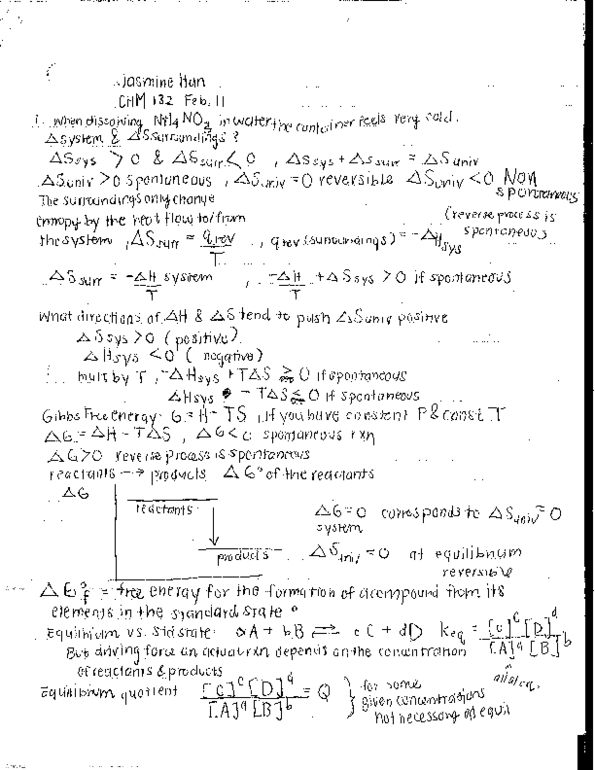 Jasmine Han
CHM 132 Feb. 11
1. When dissolving NH4NO3 in water, the container feels very cold.
△system & △Ssurroundings?
△Ssys > 0 & △Ssurr < 0 , △Ssys + △Ssurr = △Suniv
△Suniv > 0 spontaneous , △Suniv = 0 reversible △Suniv < 0 Non spontaneous
The surroundings only change
entropy by the heat flow to/from (reverse process is
the system , △Ssurr = qrev/T , qrev(surroundings) = -△Hsys spontaneous)
△Ssurr = -△H system/T , -△H/T + △Ssys > 0 if spontaneous
What directions of △H & △S tend to push △Suniv positive
△Ssys > 0 (positive).
△Hsys < 0 (negative)
mult by T , -△Hsys + T△S ≥ 0 if spontaneous
△Hsys - T△S ≤ 0 if spontaneous
Gibbs Free energy G = H - TS , if you have constant P & const. T
△G = △H - T△S , △G < 0 spontaneous rxn
△G > 0 reverse process is spontaneous
reactants → products △G° of the reactants
△G
reactants
products
△G = 0 corresponds to △Suniv = 0
system
△Suniv = 0 at equilibrium
reversible
= free energy for the formation of a compound from its
elements in the standard state °
Equilibrium vs. std state aA + bB ⇌ cC + dD Keq = [C]^c [D]^d / [A]^a [B]^b
But driving force an actual rxn depends on the concentration
of reactants & products
all at eq.
Equilibrium quotient [C]^c [D]^d / [A]^a [B]^b = Q } for some
given concentrations
not necessary at equil